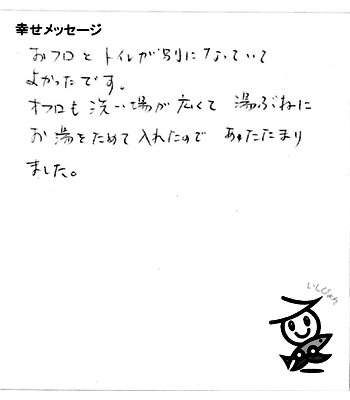 幸せメッセージ
おフロとトイレが別になっていて
よかったです。
オフロも洗い場が広くて 湯ぶねに
お湯をためて入れたので あたたまり
ました。